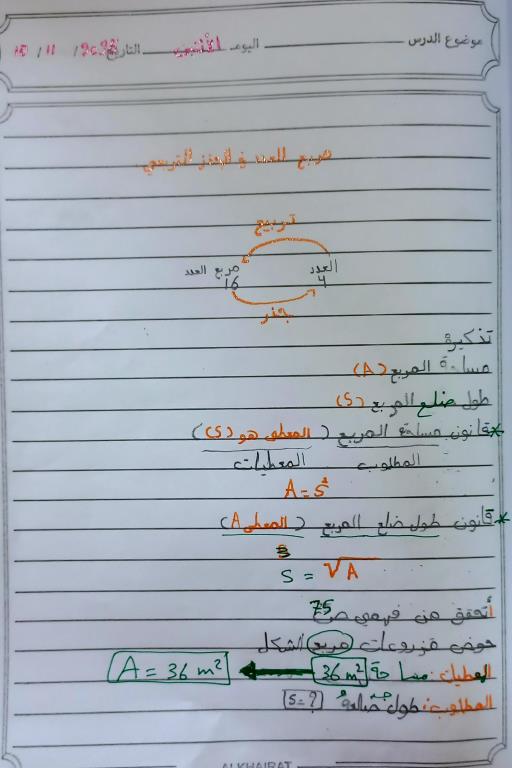 موضوع الدرس اليوم الأثنين التاريخ 10 / 11 /
مربع العدد و الجذر التربيعي
تربيع
العدد مربع العدد
4 16
جذر
تذكيرة
مساحة المربع (A)
طول ضلع المربع (S)
*قانون مساحة المربع (المعطى هو (S))
المطلوب المعطيات
A = S²
*قانون طول ضلع المربع (المعطى A)
S = √A
أتحقق من فهمي ص 75
حوض مزروعات مربع الشكل
المعطيات: مساحة 36 m² A = 36 m²
المطلوب: طول ضلعه S = ?
ALKHAIRAT